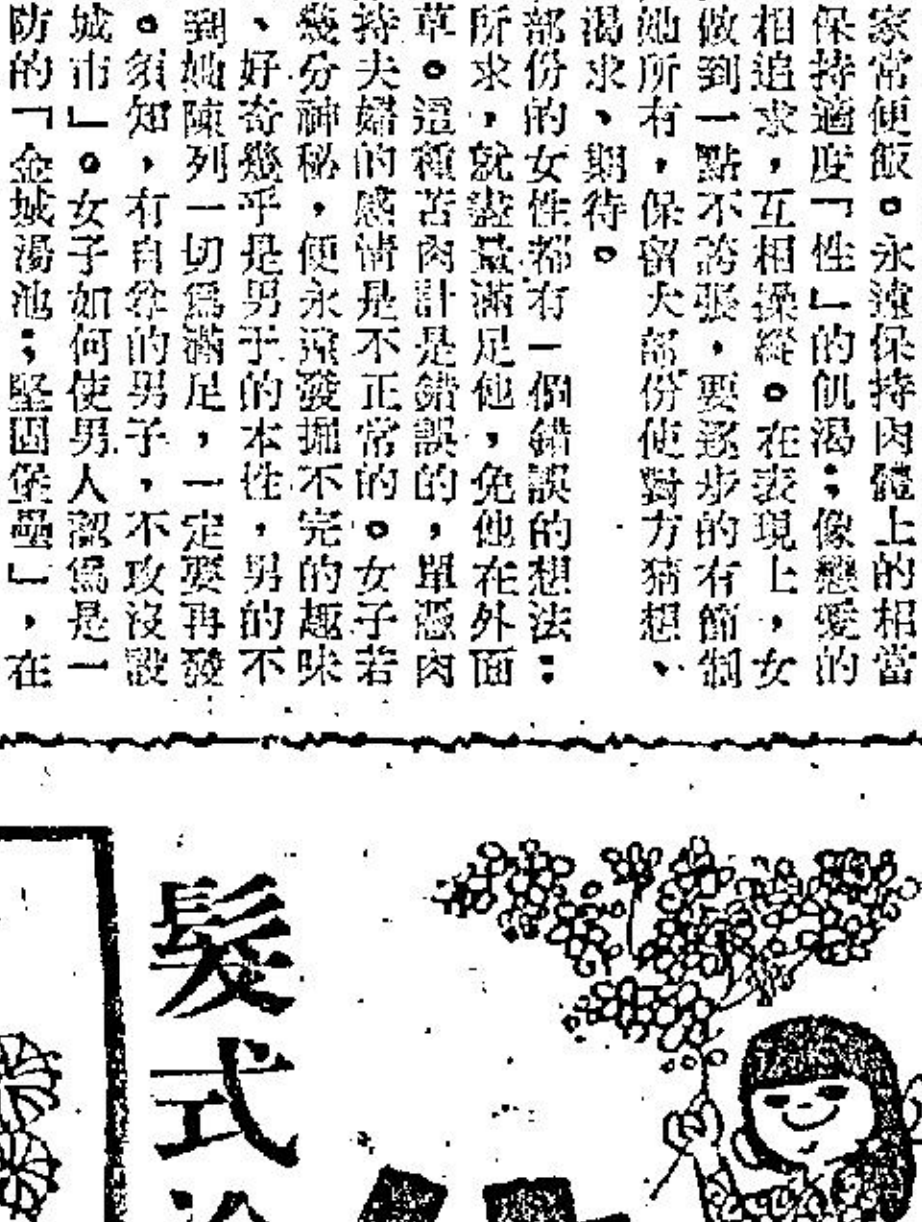 家常便飯。永遠保持肉體上的相當
保持適度「性」的飢渴；像戀愛的
相追求，互相操縱。在表現上，女
做到一點不誇張，要逐步的有節制
她所有，保留大部份使對方猜想、
渴求、期待。
部份的女性都有一個錯誤的想法：
所求，就盡量滿足他，免他在外面
草。這種苦肉計是錯誤的，單憑肉
持夫婦的感情是不正常的。女子若
幾分神秘，便永遠發掘不完的趣味
、好奇幾乎是男子的本性，男的不
到她陳列一切為滿足，一定要再發
。須知，有自尊的男子，不攻沒設
城市」。女子如何使男人認為是一
防的「金城湯池；堅固堡壘」，在
髮式